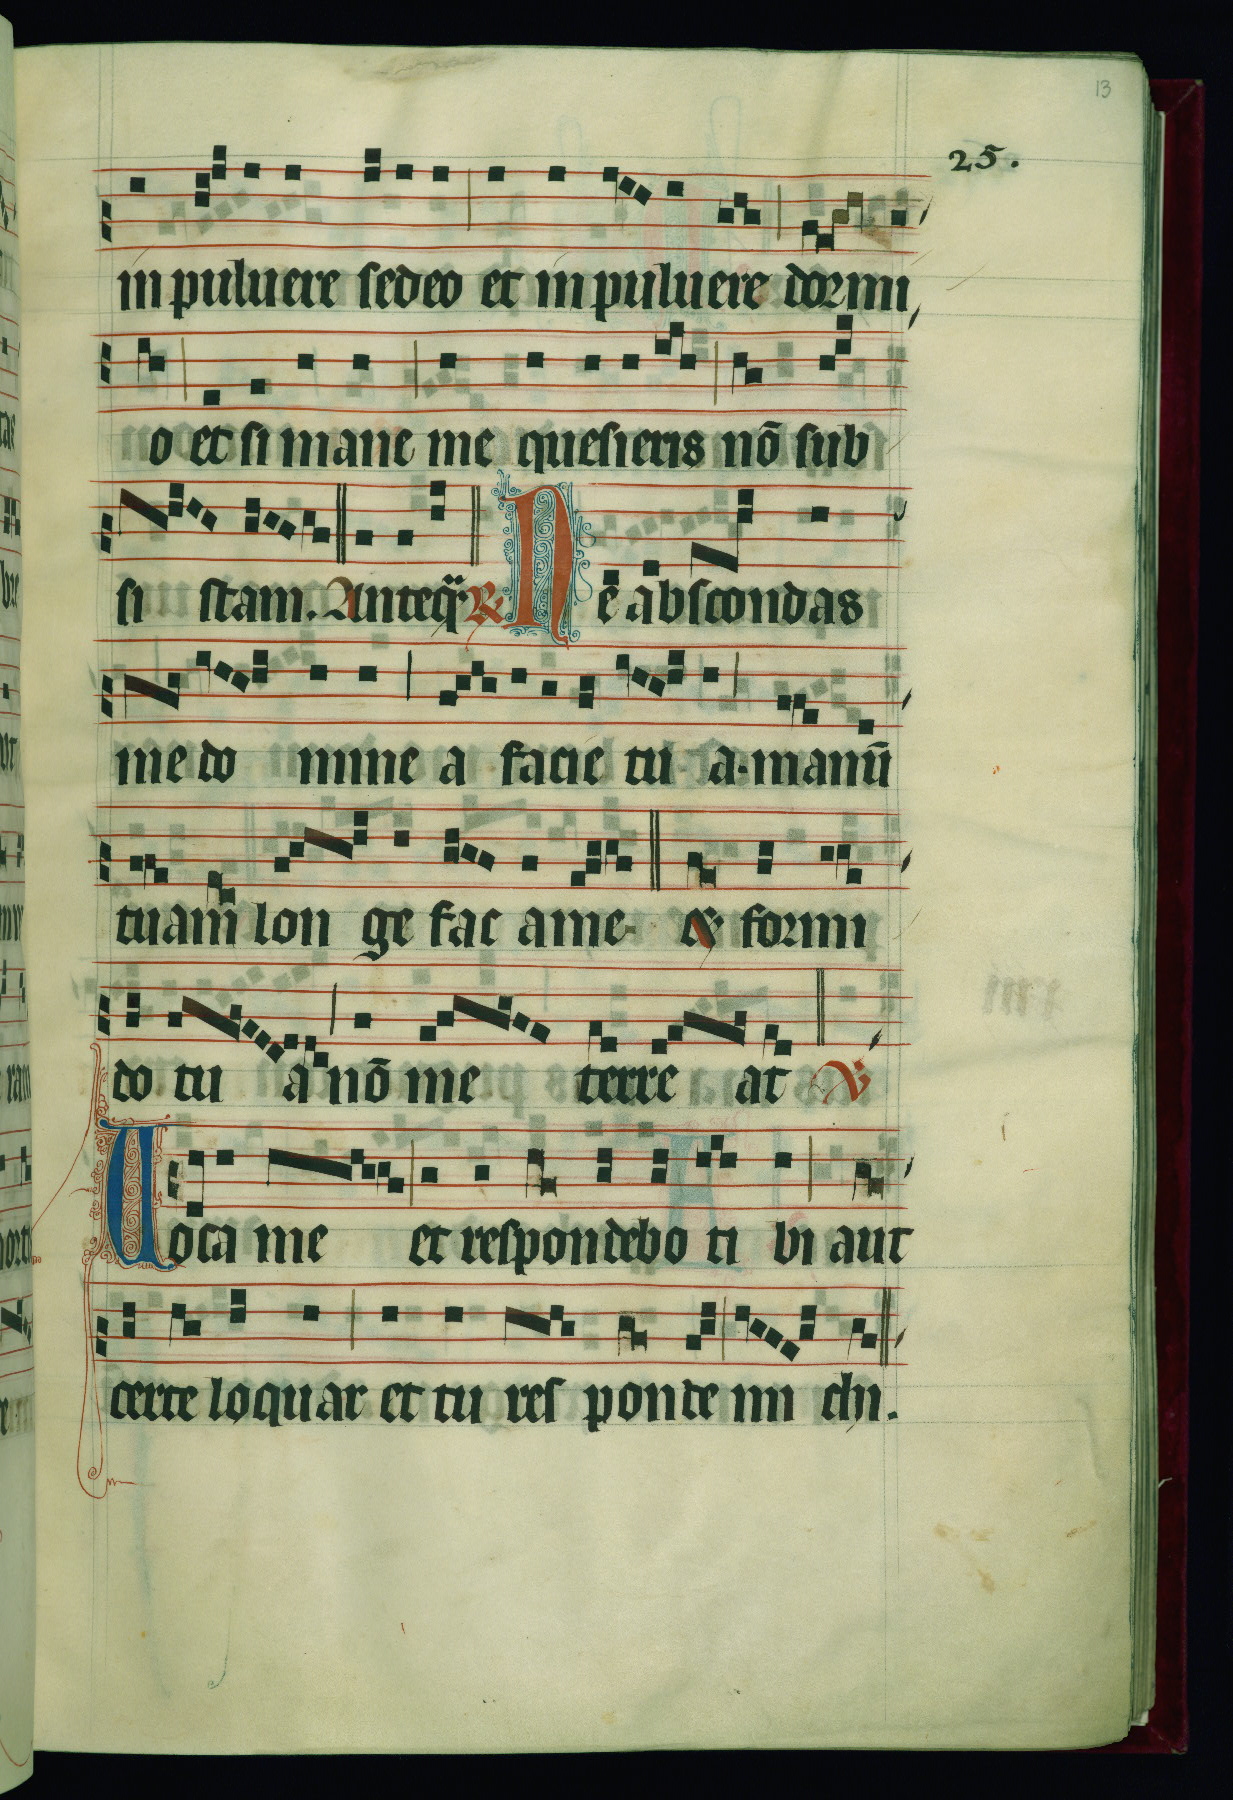 13
25.
in puluere sedeo et in puluere dormi
o et si mane me quesieris nō sub
si stam. Anteq̄ꝫ ℟ Ne abscondas
me do mine a facie tu a. manū
tuam lon ge fac a me. et formi
do tu a nō me terre at ℣
Uoca me et respondebo ti bi aut
certe loquar et tu res ponde mi chi.